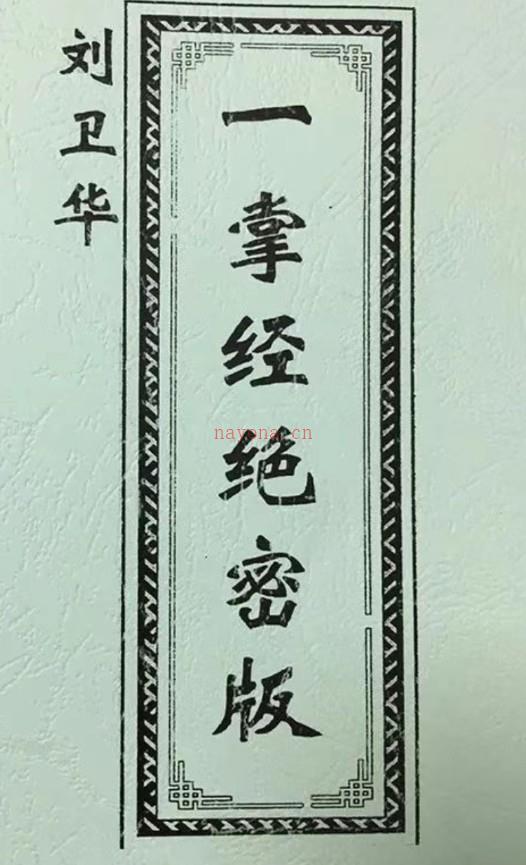 刘卫华
一掌经绝密版
nayona.cn